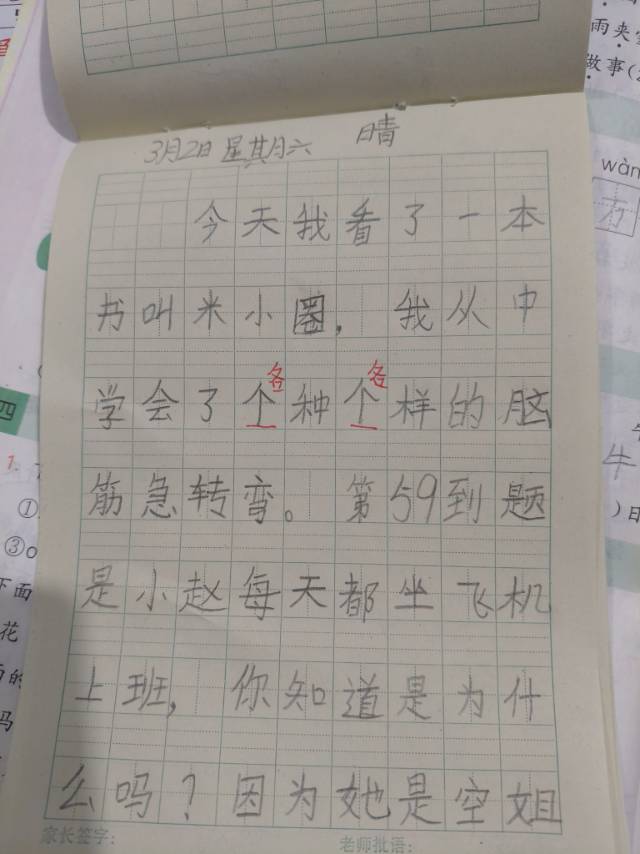 3月2日 星期六 晴
今天我看了一本
书叫米小圈，我从中
各 各
学会了个种个样的脑
筋急转弯。第59到题
是小赵每天都坐飞机
上班，你知道是为什
么吗？因为她是空姐
家长签字： 老师批语：
雨夹
做事(
wàn
方
牛
)日
四
1.
①
③o
下面
花
的
吗